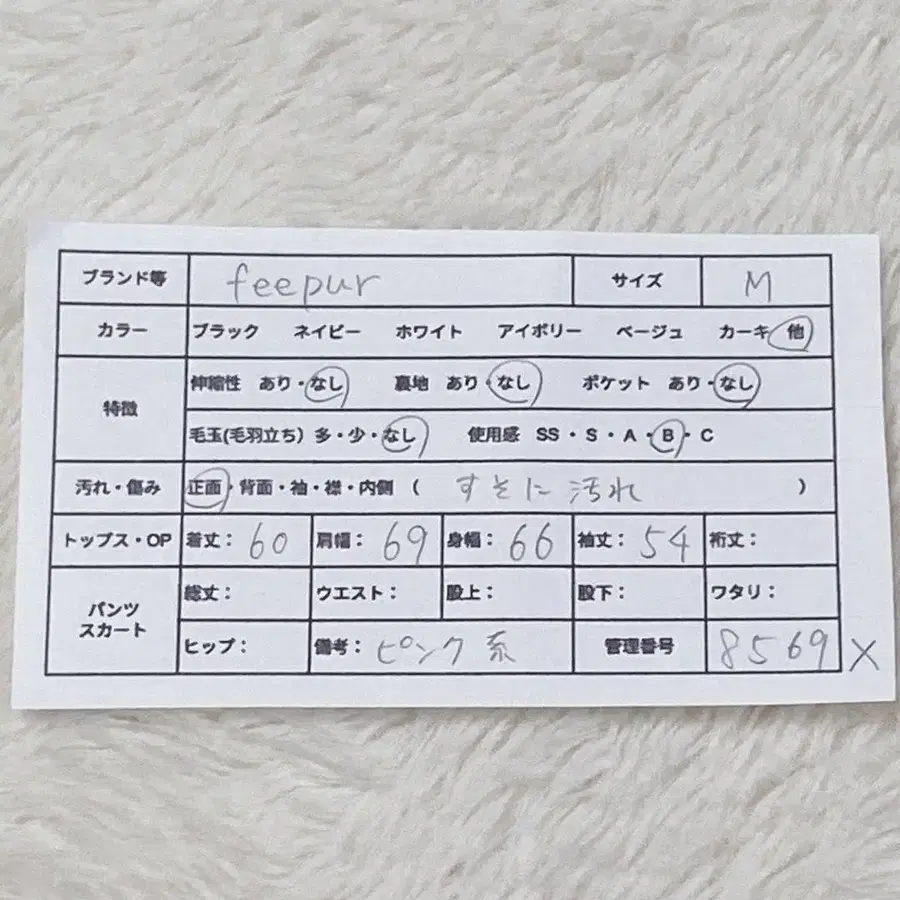 ブランド等 feepur サイズ M
カラー ブラック ネイビー ホワイト アイボリー ベージュ カーキ 他
特徴 伸縮性 あり・なし 裏地 あり・なし ポケット あり・なし
毛玉(毛羽立ち) 多・少・なし 使用感 SS・S・A・B・C
汚れ・傷み 正面・背面・袖・襟・内側 ( すそに汚れ )
トップス・OP 着丈: 60 肩幅: 69 身幅: 66 袖丈: 54 裄丈:
パンツ スカート 総丈: ウエスト: 股上: 股下: ワタリ:
ヒップ: 備考: ピンク系 管理番号 8569 X